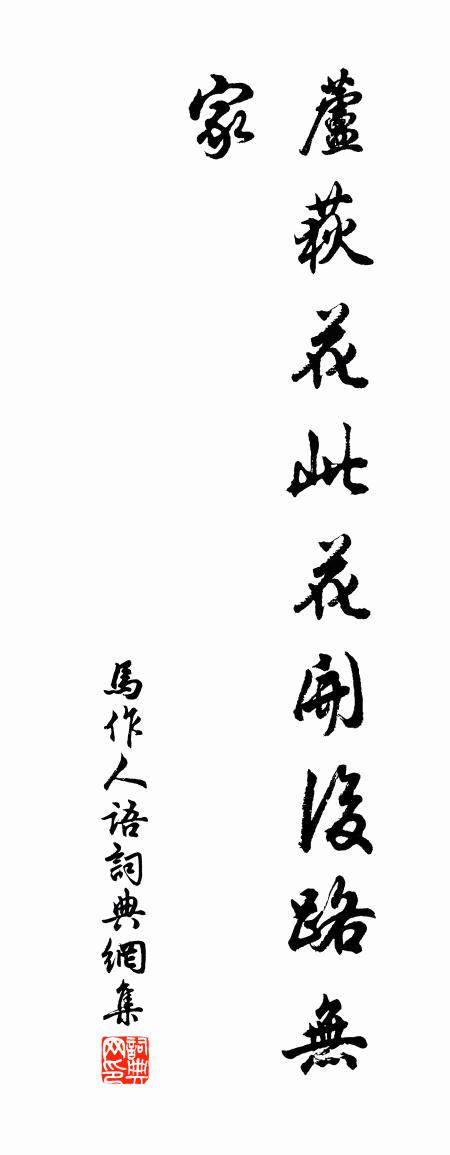 蘆荻花此花開後路無
家
馬作人语詞典網集
詞典网印